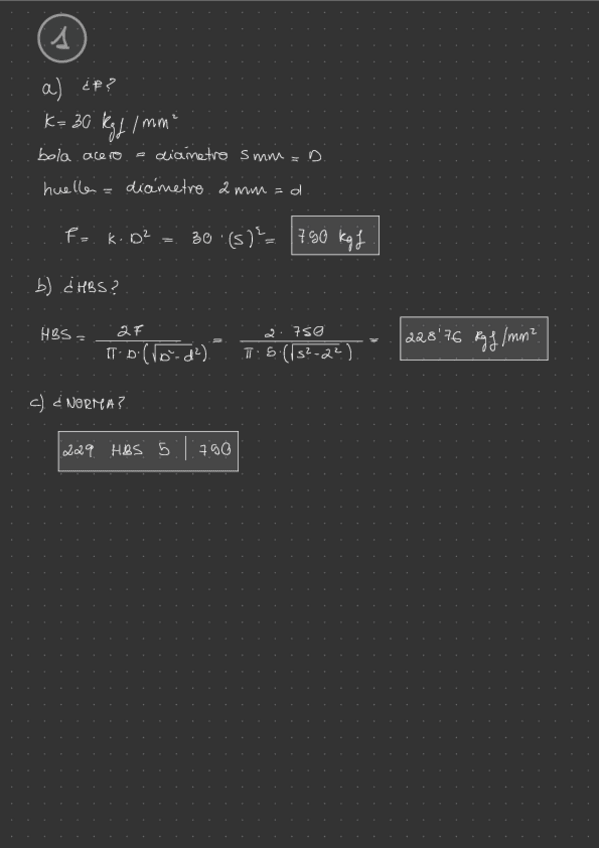 1
a) ¿F?
K = 30 kgf/mm²
bola acero = diámetro 5mm = D
huella = diámetro 2mm = d
F = K·D² = 30·(5)² = 750 kgf
b) ¿HBS?
HBS = 2F / π·D·(√D²-d²) = 2·750 / π·5·(√5²-2²) = 228'76 kgf/mm²
c) ¿NORMA?
229 HBS 5 | 750